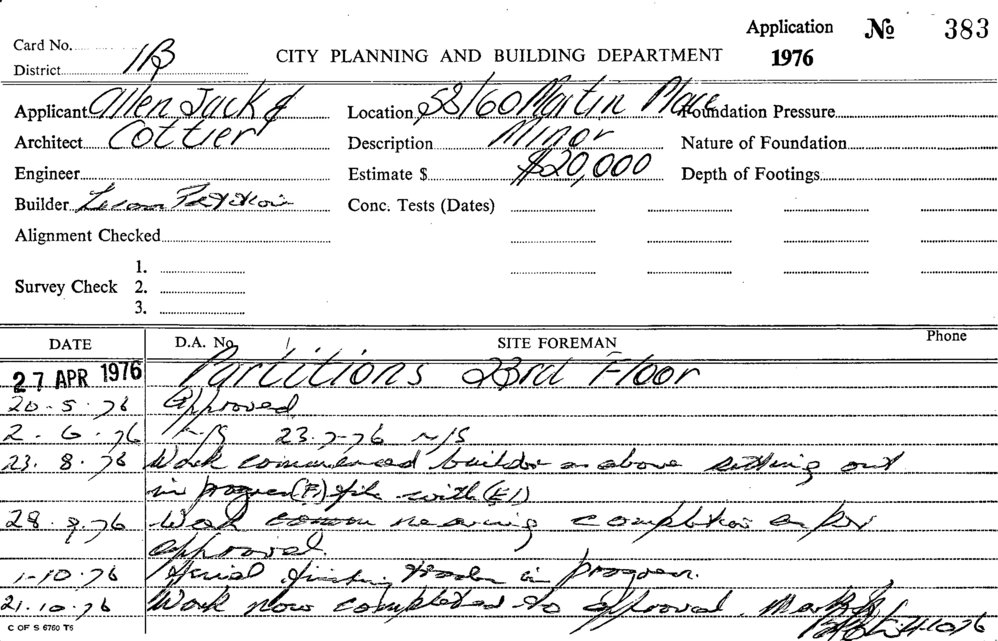 Application No 383
Card No. 1B
CITY PLANNING AND BUILDING DEPARTMENT 1976
District
Applicant Allen Jack & Location 58/60 Martin Place Foundation Pressure
Architect Cottier Description Minor Nature of Foundation
Engineer Estimate $ $20,000 Depth of Footings
Builder Conc. Tests (Dates)
Alignment Checked
1.
Survey Check 2.
3.
DATE D.A. No. SITE FOREMAN Phone
27 APR 1976 Partitions 23rd Floor
20-5-76 Approved
2.6.76 N/S 23.7-76 N/S
23.8.76 Work commenced builder as above setting out
in progress (F) file with (E1)
28.9.76 Work nearing completion as per
approval.
1-10-76 finishing trades in progress.
21.10.76 Work now completed to approval.
C OF S 6760 TS